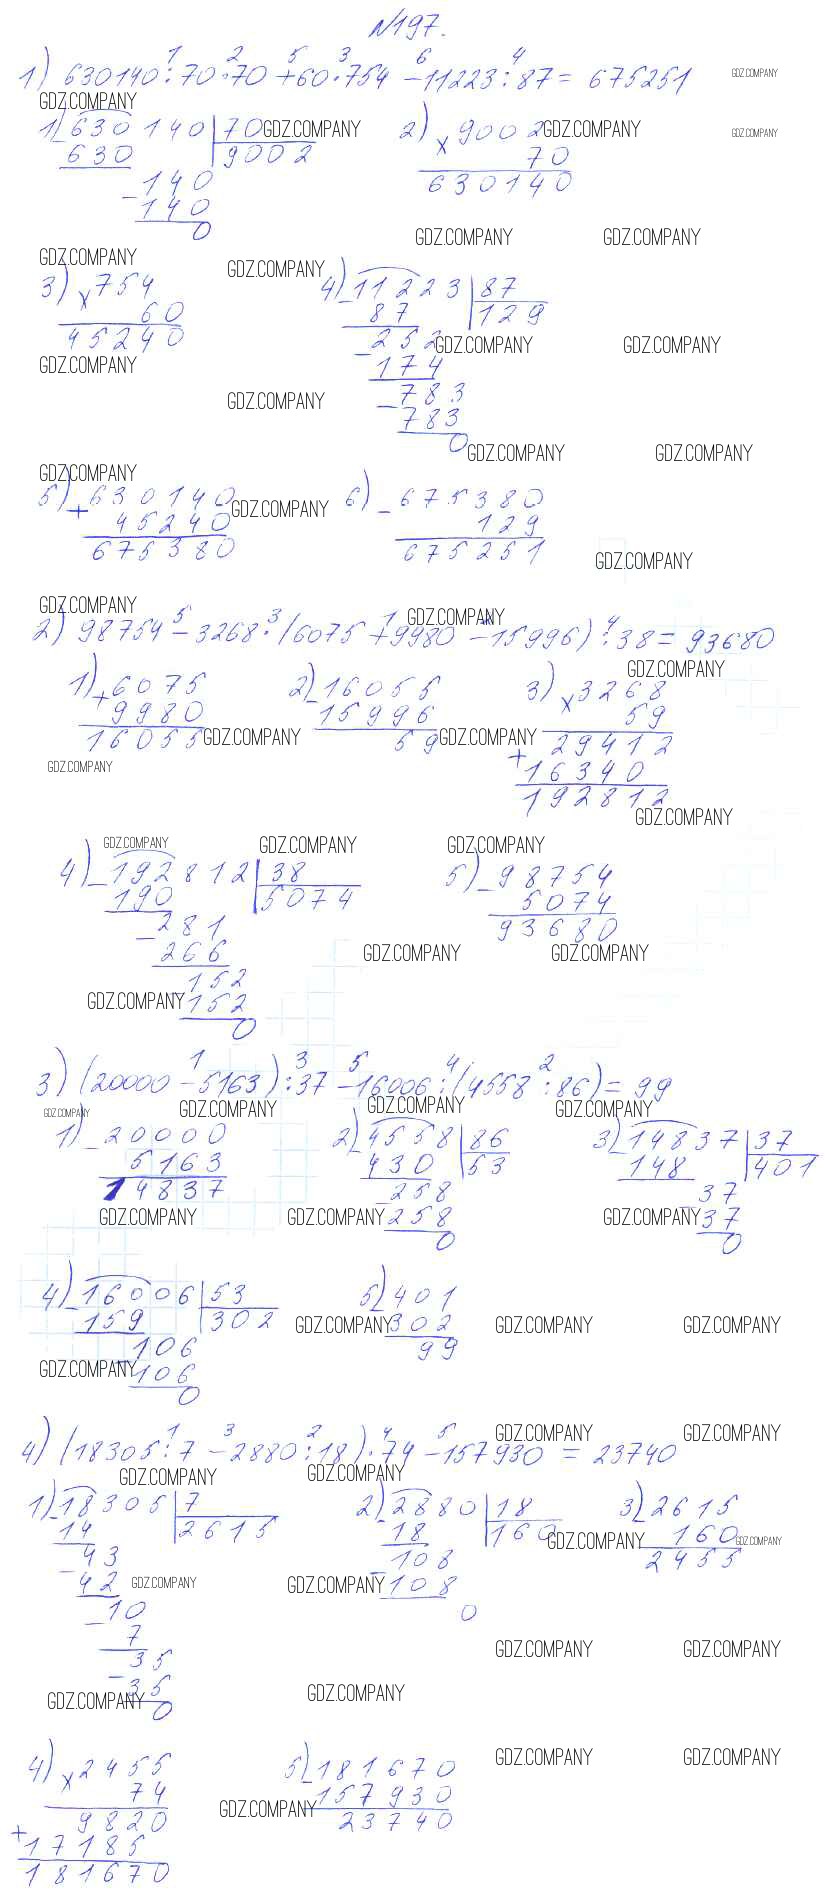 №197.
1 2 5 3 6 4
1) 630140:70·70+60·754-11223:87=675251
GDZ.COMPANY
GDZ.COMPANY
1) 630140 | 70 GDZ.COMPANY 2) 9002 GDZ.COMPANY GDZ.COMPANY
- 630 9002 × 70
140 630140
- 140
0
GDZ.COMPANY GDZ.COMPANY
GDZ.COMPANY GDZ.COMPANY
3) × 754 4) - 11223 | 87
60 87 129
45240 - 252 GDZ.COMPANY GDZ.COMPANY
GDZ.COMPANY 174
GDZ.COMPANY - 783
783
0 GDZ.COMPANY GDZ.COMPANY
GDZ.COMPANY
5) + 630140 GDZ.COMPANY 6) - 675380
45240 129
675380 675251
GDZ.COMPANY
GDZ.COMPANY GDZ.COMPANY
5 3 1 2 4
2) 98754-3268·(6075+9980-15996):38=93680
GDZ.COMPANY
1) + 6075 2) - 16055 3) × 3268
9980 15996 59
16055 GDZ.COMPANY 59 GDZ.COMPANY 29412
GDZ.COMPANY + 16340
192812
GDZ.COMPANY
GDZ.COMPANY GDZ.COMPANY GDZ.COMPANY
4) - 192812 | 38 5) - 98754
190 5074 5074
- 281 93680
266 GDZ.COMPANY GDZ.COMPANY
152
GDZ.COMPANY - 152
0
1 3 5 4 2
3) (20000-5163):37-16006:(4558:86)=99
GDZ.COMPANY GDZ.COMPANY GDZ.COMPANY GDZ.COMPANY
1) - 20000 2) - 4558 | 86 3) - 14837 | 37
5163 430 53 148 401
14837 - 258 37
GDZ.COMPANY GDZ.COMPANY 258 GDZ.COMPANY - 37
0 0
4) - 16006 | 53 5) - 401
159 302 GDZ.COMPANY 302 GDZ.COMPANY GDZ.COMPANY
- 106 99
GDZ.COMPANY 106
0
1 3 2 4 5
GDZ.COMPANY GDZ.COMPANY
4) (18305:7-2880:18)·74-157930=23740
GDZ.COMPANY GDZ.COMPANY
1) - 18305 | 7 2) - 2880 | 18 3) - 2615
14 2615 18 160 GDZ.COMPANY 160 GDZ.COMPANY
- 43 - 108 2455
42 GDZ.COMPANY GDZ.COMPANY 108
- 10 0
7
- 35 GDZ.COMPANY GDZ.COMPANY
GDZ.COMPANY 35 GDZ.COMPANY
0
4) × 2455 5) - 181670 GDZ.COMPANY GDZ.COMPANY
74 157930
9820 GDZ.COMPANY 23740
+ 17185
181670